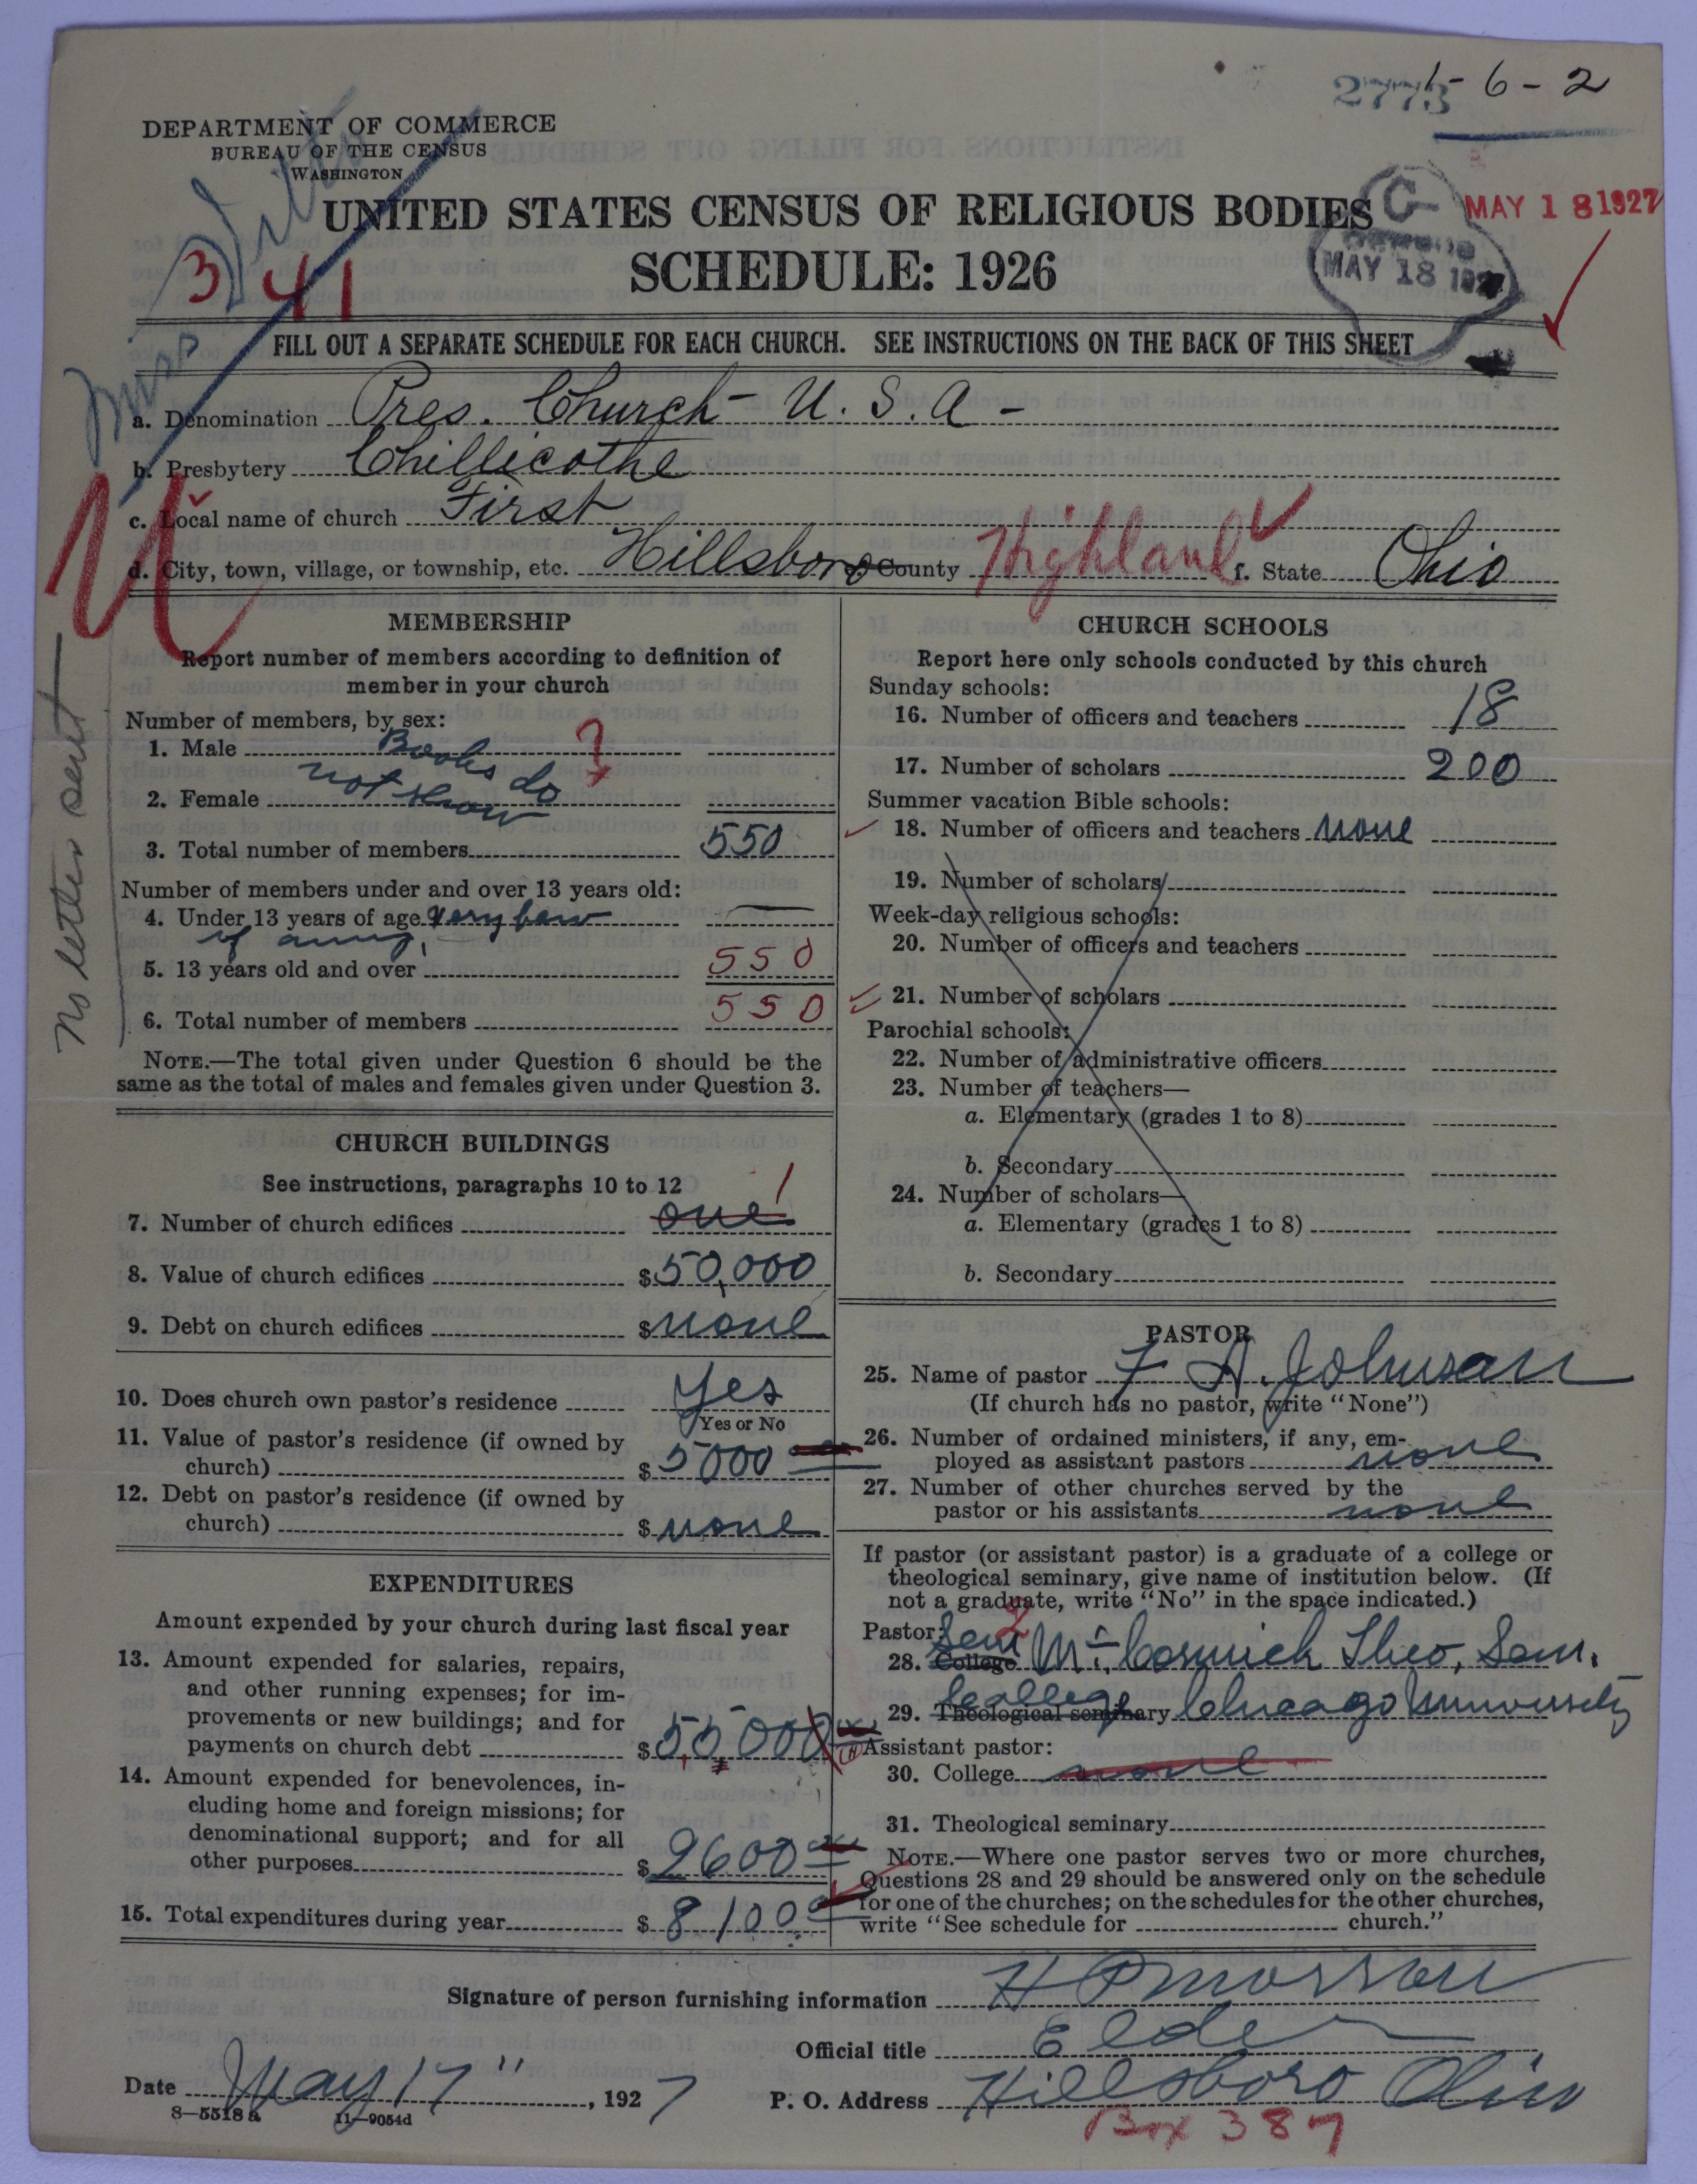 2775 1-6-2
DEPARTMENT OF COMMERCE
BUREAU OF THE CENSUS
WASHINGTON
UNITED STATES CENSUS OF RELIGIOUS BODIES
MAY 18 1927
SCHEDULE: 1926
MAY 18 1927
3 41
FILL OUT A SEPARATE SCHEDULE FOR EACH CHURCH. SEE INSTRUCTIONS ON THE BACK OF THIS SHEET
a. Denomination Pres. Church - U. S. A -
b. Presbytery Chillicothe
c. Local name of church First
d. City, town, village, or township, etc. Hillsboro County Highland f. State Ohio
No letter sent
MEMBERSHIP
Report number of members according to definition of
member in your church
Number of members, by sex:
1. Male Books do ?
2. Female not show
3. Total number of members 550
Number of members under and over 13 years old:
4. Under 13 years of age very few
if any,
5. 13 years old and over 550
6. Total number of members 550
NOTE.—The total given under Question 6 should be the
same as the total of males and females given under Question 3.
CHURCH BUILDINGS
See instructions, paragraphs 10 to 12
7. Number of church edifices one 1
8. Value of church edifices $ 50,000
9. Debt on church edifices $ none
10. Does church own pastor's residence Yes
Yes or No
11. Value of pastor's residence (if owned by
church) $ 5000
12. Debt on pastor's residence (if owned by
church) $ none
EXPENDITURES
Amount expended by your church during last fiscal year
13. Amount expended for salaries, repairs,
and other running expenses; for im-
provements or new buildings; and for
payments on church debt $ 5,5,000
14. Amount expended for benevolences, in-
cluding home and foreign missions; for
denominational support; and for all
other purposes $ 2600
15. Total expenditures during year $ 8100
CHURCH SCHOOLS
Report here only schools conducted by this church
Sunday schools:
16. Number of officers and teachers 18
17. Number of scholars 200
Summer vacation Bible schools:
18. Number of officers and teachers none
19. Number of scholars
Week-day religious schools:
20. Number of officers and teachers
21. Number of scholars
Parochial schools:
22. Number of administrative officers
23. Number of teachers—
a. Elementary (grades 1 to 8)
b. Secondary
24. Number of scholars—
a. Elementary (grades 1 to 8)
b. Secondary
PASTOR
25. Name of pastor F. A. Johnson
(If church has no pastor, write "None")
26. Number of ordained ministers, if any, em-
ployed as assistant pastors none
27. Number of other churches served by the
pastor or his assistants none
If pastor (or assistant pastor) is a graduate of a college or
theological seminary, give name of institution below. (If
not a graduate, write "No" in the space indicated.)
Pastor:
28. College Sem Mc Cormick Theo, Sem.
29. Theological seminary College Chicago University
Assistant pastor:
30. College none
31. Theological seminary
NOTE.—Where one pastor serves two or more churches,
Questions 28 and 29 should be answered only on the schedule
for one of the churches; on the schedules for the other churches,
write "See schedule for church."
Signature of person furnishing information H P Morrow
Official title Elder
Date May 17", 1927 P. O. Address Hillsboro Ohio
8—5518a 11—9054d
Box 387